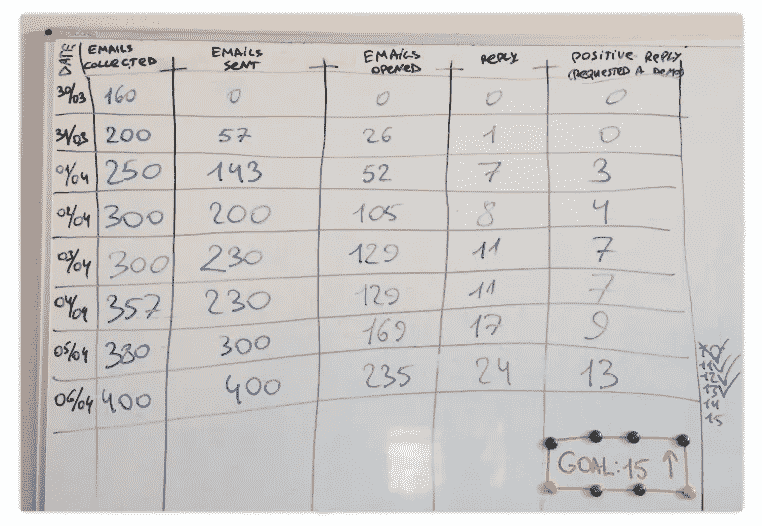 DATE EMAILS COLLECTED EMAILS SENT EMAILS OPENED REPLY POSITIVE REPLY (REQUESTED A DEMO)
30/03 160 0 0 0 0
31/03 200 57 26 1 0
01/04 250 143 52 7 3
02/04 300 200 105 8 4
03/04 300 230 129 11 7
04/04 357 230 129 11 7
05/04 380 300 169 17 9
06/04 400 400 235 24 13
13
14
15
GOAL: 15 ↑